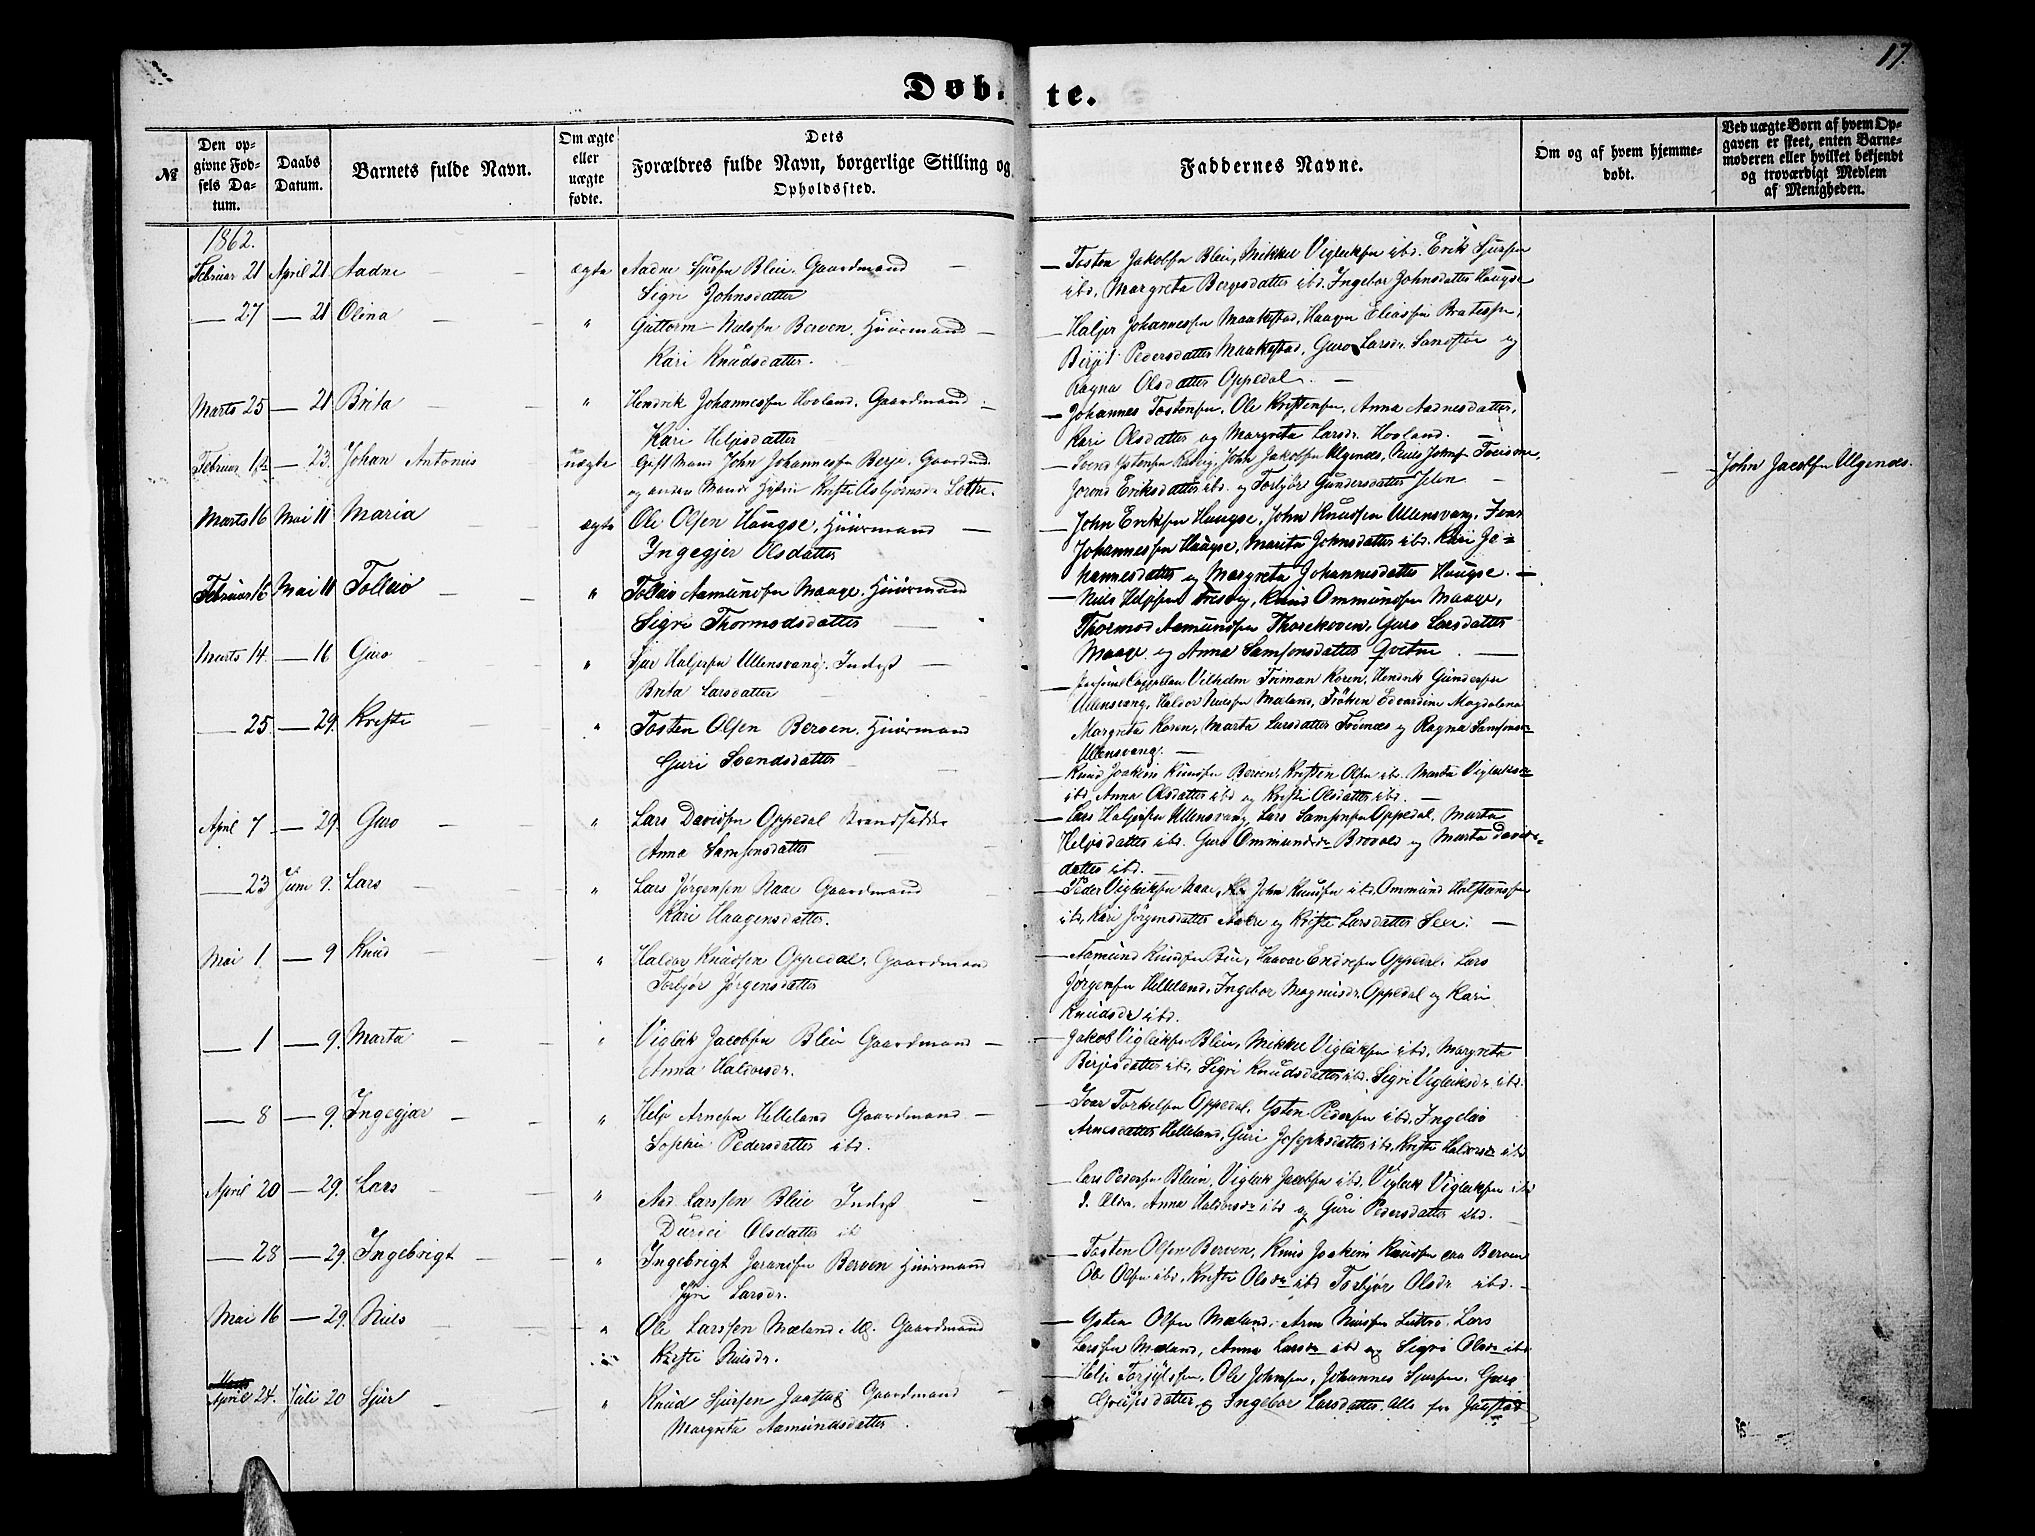 17.
Døb. te.
№
Den opgivne Fødsels Datum.
Daabs Datum.
Barnets fulde Navn.
Om ægte eller uægte fødte.
Dets Forældres fulde Navn, borgerlige Stilling og Opholdssted.
Faddernes Navne.
Om og af hvem hjemmedøbt.
Ved uægte Børn af hvem Opgaven er skeet, enten Barnemoderen eller hvilket bekjendt og troværdigt Medlem af Menigheden.
1862.
Februar 21 April 21 Aadne — ægte Aadne Sjursen Bleie. Gaardmand —
Sigri Johnsdatter
— Tosten Jakobsen Bleie, Mikkel Vigleiksen ibd. Erik Sjursen
ibd. Margreta Bergesdatter ibd. Ingebor Johnsdatter Haugse
— 27 — 21 Olina — " Guttorm Nielsen Berven. Huusmand —
Kari Knudsdatter.
— Haljer Johannessen Maakestad, Haagen Eliassen
Birgit Pedersdatter Maakestad, Guro Larsdr. og
Ragna Olsdatter Oppedal. —
Marts 25 — 21 Brita — " Hendrik Johannessen Hovland. Gaardmand —
Kari Heljesdatter
— Johannes Tostensen, Ole Kristensen, Anna Aadnesdatter,
Kari Olsdatter og Margreta Larsdr. Hovland. —
Februar 14 — 23. Johan Antonius uægte Gift Mand John Johannessen Berje. Gaardmd.
og anden Mands Hustru Kristi Asbjørnsdr. Lothe.
— Svend John Jakobsen Ulgenes, Niels Johns.
Jorond Eriksdatter ibd. og Torbjør Gundersdatter
John Jacobsen Ulgenes.
Marts 16 Mai 11 Maria — ægte Ole Olsen Haugse, Huusmand —
Ingegjer Olsdatter
— John Eriksen Haugse, John Knudsen Ullensvang,
Johannessen Haugse, Marita Johnsdatter ibd. Kari Jo-
hannesdatter og Margreta Johannesdatter Haugse. —
Februar 16 Mai 11 Tolleiv — " Tolleiv Aamundsen Maage, Huusmand
Sigri Thormodsdatter
— Niels Heljesen Knud Ommundsen Maage,
Thormod Aamundsen Guro Larsdatter
Maage og Anna Samsonsdatter
Marts 14. — 16 Guro — " Sjur Haljersen Ullensvang. Inderst —
Brita Larsdatter
— Personel Cappellan Vilhelm Friman Koren, Hendrik Gundersen
Ullensvang, Haldor Nielsen Mæland, Frøken Edvardine Magdalena
Margreta Koren, Marta Larsdatter og Ragna Samsonsdr
Ullensvang. —
— 25. — 29. Kristi — " Tosten Olsen Berven. Huusmand
Guri Svendsdatter
— Knud Joakim Knudsen Berven, Kristen Olsen ibd. Marta Vigleiksdr
ibd. Anna Olsdatter ibd og Kristi Olsdatter ibd. —
April 7 — 29. Guro — " Lars Davidsen Oppedal Strandsidder
Anna Samsonsdatter
— Lars Haljersen Ullensvang, Lars Samsonsen Oppedal, Marta
Heljesdatter ibd. Guro Ommundsdr og Marta Davids-
datter ibd. —
— 23 Juni 9. Lars — " Lars Jørgensen Naae Gaardmand
Kari Haagensdatter.
— Peder Vigleiksen Naae, John Knudsen ibd, Ommund
ibd, Kari Jørgensdatter og Kristi Larsdatter —
Mai 1 — 9 Knud — " Haldor Knudsen Oppedal. Gaardmand
Torbjør Jørgensdatter
— Aamund Knudsen Haavar Endresen Oppedal. Lars
Jørgensen Helleland. Ingebor Magnusdr. Oppedal og Kari
Knudsdr ibd.
— 1 — 9. Marta — " Vigleik Jacobsen Bleie Gaardmand —
Anna Haldorsdr.
— Jakob Vigleiksen Bleie, Mikkel Vigleiksen ibd, Margreta
Birjesdatter ibd, Sigri Knudsdatter ibd. Sigri Vigleiksdr ibd.
— 8 — 9. Ingegjær — " Helje Arnesen Helleland Gaardmand —
Sophie Pedersdatter ibd.
— Ivar Torkelsen Oppedal, Ysten Pedersen ibd, Ingeleiv
Arnesdatter Helleland, Guri Josephsdatter ibd, Kristi Haldorsdr ibd
April 20 — 29. Lars — " Aad. Larssen Bleie Inderst —
Durdei Olsdatter ib
Lars Pedersen Bleie, Vigleik Jacobsen ibd. Vigleik Vigleiksen ibd
d. Ældre, Anna Haldorsdr ibd og Guri Pedersdatter ibd. —
— 28 — 29. Ingebrigt — " Ingebrigt Berven Huusmand
Larsdr.
— Tosten Olsen Berven, Knud Joakim Knudsen Berven
Ole Olsen ibd, Kristi Olsdr ibd Torbjør Olsdr. ibd. —
Mai 16 — 29. Niels — " Ole Larssen Mæland. Gaardmand
Kristi Nielsdr.
— Ysten Olsen Mæland, Arne Nielsen Lars
Larssen Mæland, Anna Larsdr ibd og Sigri Olsdr ibd
Marts
April 24. Juli 20 Sjur — " Knud Sjursen Jaastad Gaardmand —
Margreta Aamundsdatter.
Helje Torjylsen, Ole Johnsen, Johannes Sjursen, Guro
og Ingebor Larsdatter. Alle fra Jaastad